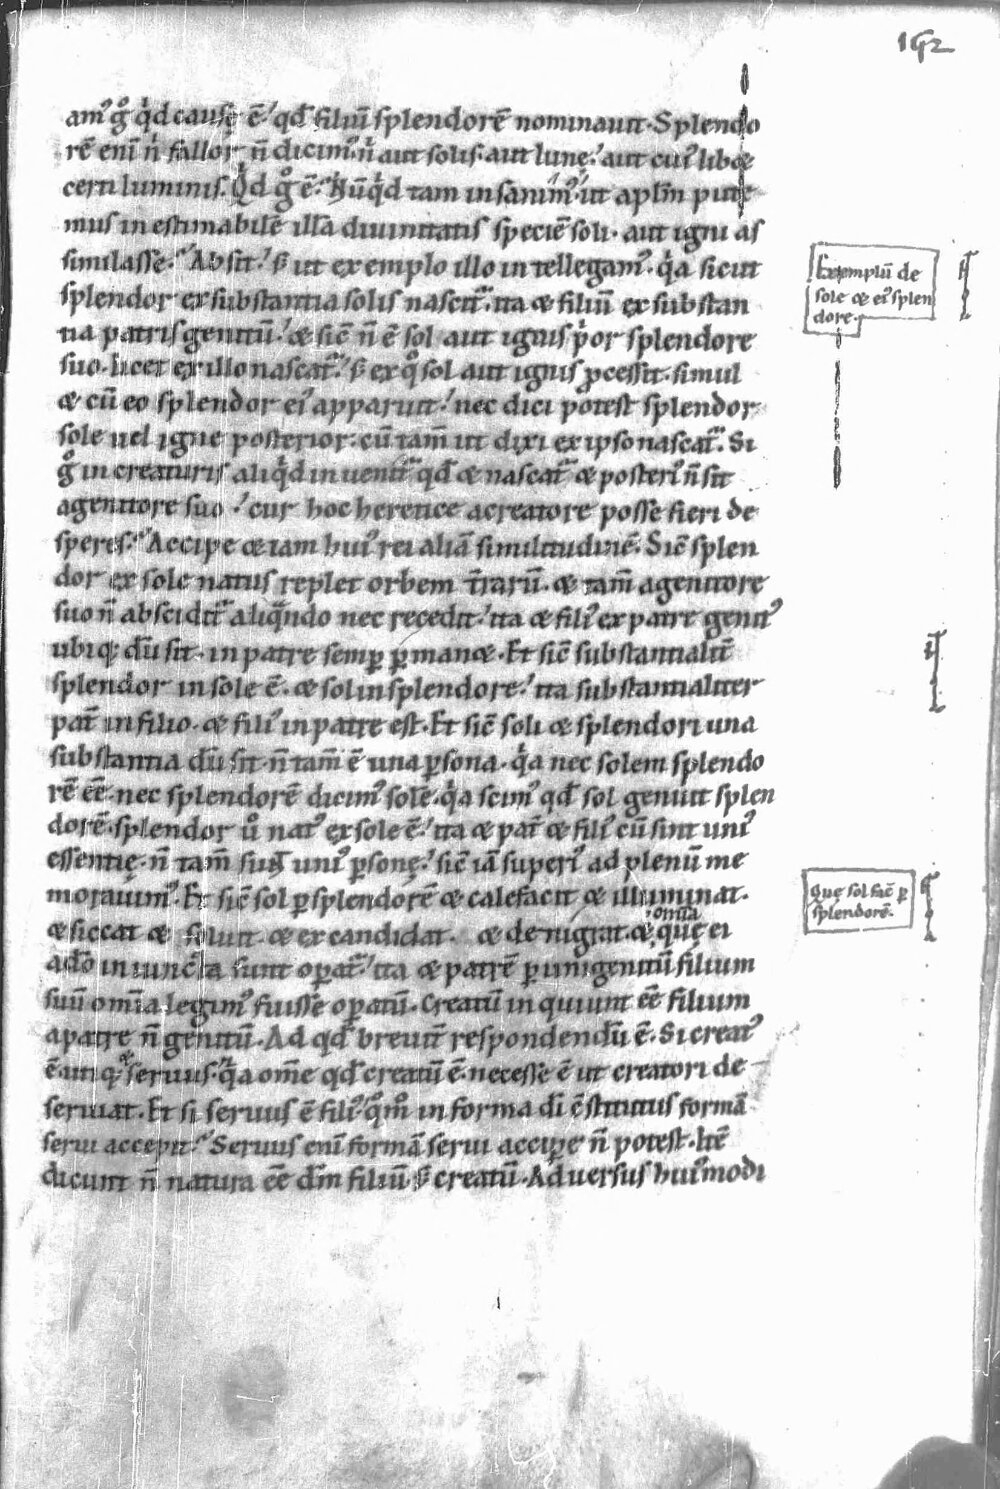 192
amꝰ g̊ qͥd cauſę ē qđ filiū ſplendorē nominauit. Splendo
rē eni n̄ fallor n̄ dicimꝰ n̄ aut ſolis. aut lunę. aut cuiꝰ libet
certi luminis. Qͥd g̊ ē. Nūqͥd tam in ſanimꝰ ut aplm̄ pute
mus in eſtimabilē illā diuinitatis ſpeciē ſoli. aut igni aſ
ſimilaſſe. Abſit. ſ; ut exemplo illo intellegamꝰ. qͥa ſicut
ſplendor ex ſubſtantia ſolis naſcit᷑. ita & filiū ex ſubſtan
tia patris genitū. & ſic̄ n̄ ē ſol aut ignis pͥor ſplendore
ſuo. licet ex illo naſcat᷑. ſ; ex qͦ ſol aut ignis ꝓceſſit. ſimul
& cū eo ſplendor eiꝰ apparuit. nec dici poteſt ſplendor
ſole uel igne poſterior. cū tam̄ ut dixi ex ipſo naſcat᷑. Si
g̊ in creaturis aliqͥd inuenit᷑ qđ & naſcat᷑ & poſteriꝰ n̄ ſit
a genitore ſuo. cur hoc heretice a creatore poſſe fieri de
ſperes. Accipe & iam huiꝰ rei aliā ſimilitudinē. Sic̄ ſplen
dor ex ſole natus replet orbem t̄rarū. & tam̄ a genitore
ſuo n̄ abſcidit᷑ aliqͣndo nec recedit. ita & filiꝰ ex patre genitꝰ
ubiq; dū ſit. in patre ſemꝑ ꝑman&. Et ſic̄ ſubſtantialit̄
ſplendor in ſole ē. & ſol in ſplendore. ita ſubſtantialiter
pat̄ in filio. & filiꝰ in patre eſt. Et ſic̄ ſoli & ſplendori una
ſubſtantia dū ſit. n̄ tam̄ ē una ꝑſona. qͥa nec ſolem ſplendo
rē eē. nec ſplendorē dicimꝰ ſolē. qͥa ſcimꝰ qđ ſol genuit ſplen
dorē. ſplendor uͦ natꝰ ex ſole ē. ita & pat̄ & filiꝰ cū ſint uniꝰ
eſſentię. n̄ tam̄ ſunt uniꝰ ꝑſonę. ſic̄ iā ſuperiꝰ ad plenū me
morauimꝰ. Et ſic̄ ſol ꝑ ſplendorē & calefacit & illuminat.
& ſiccat & ſoluit. & ex candidat. & denigrat. & omnia quę ei
ad̄o iniuncta ſunt oꝑat᷑. ita & patrē ꝑ unigenitū filium
ſuū omīa legimꝰ fuiſſe oꝑatū. Creatū inquiunt eē filium
a patre n̄ genitū. Ad qđ breuit̄ reſpondendū ē. Si creatꝰ
ē. utiq; & ſeruus. qͥa om̄e qđ creatū ē. neceſſe ē ut creatori de
ſeruiat. Et ſi ſeruus ē filiꝰ. qͦmͦ in forma dī c̄ſtitutus formā
ſerui accepit. Seruus enī formā ſerui accipe n̄ poteſt. Itē
dicunt n̄ natura eē dn̄m filiū. ſ; creatū. Aduerſus huiꝰmodi
Exemplū de
ſole & eiꝰ ſplen
dore.
Quę ſol fac̄ ꝑ
ſplendorē.